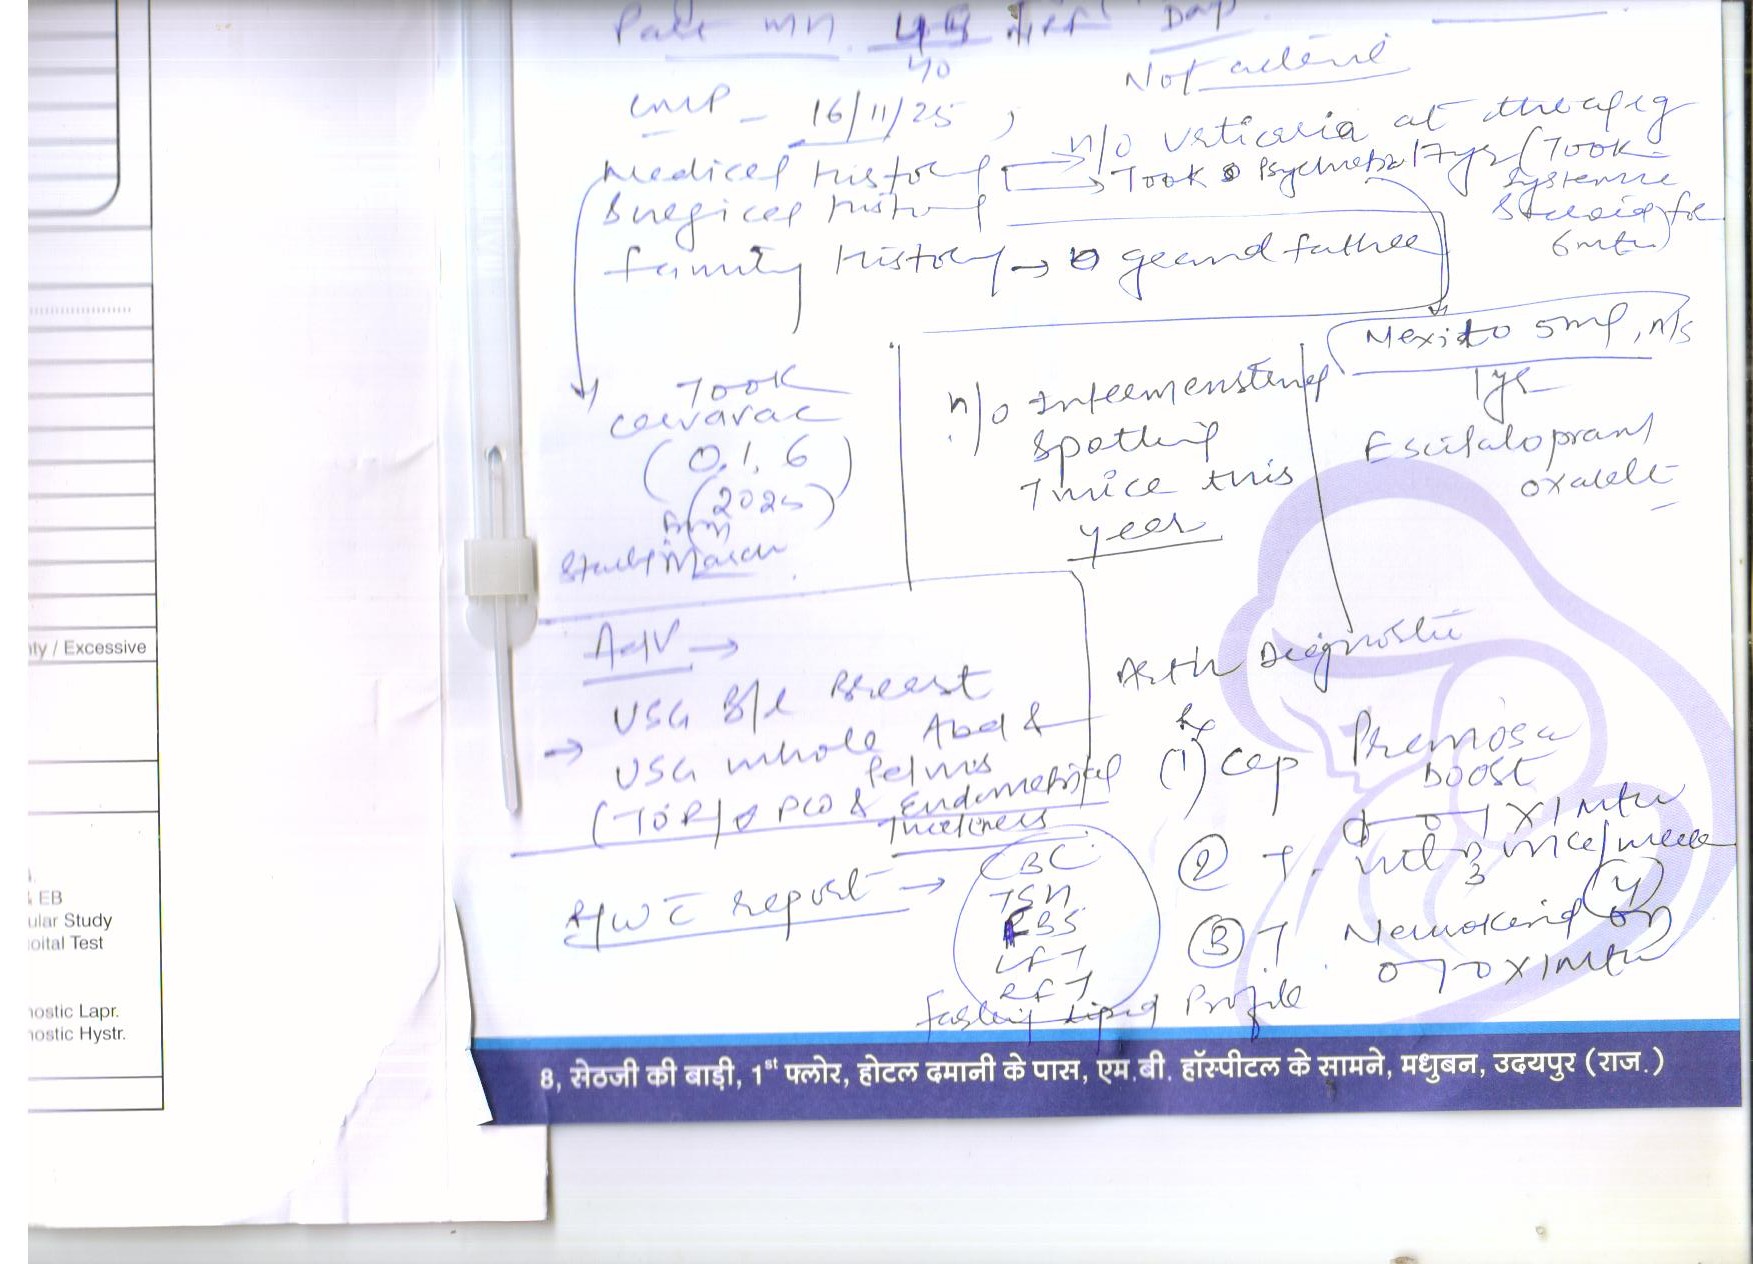 Past MH
Not active
LMP - 16/11/25,
Medical History → H/O Urticaria at the age
→ Took Psychiatric / 7 yrs (Took systemic steroid for 6 mth)
Surgical History
Family History → grand father
Nexito 5mg, H/S
1 yr
Escitalopram
oxalate
Took
Cervavac
(0, 1, 6)
(2025)
Start March
H/O Intermenstrual
spotting
Twice this
year
Adv →
USG B/L Breast
→ USG whole Abd &
Pelvis
(TOP) PCO & Endometrial
Thickness
R/W c report →
CBC
TSH
FBS
LFT
RFT
Fasting Lipid Profile
Arth Diagnostic
Rx
(1) Cap Premosa
Boost
0-1 X 1 Mth
(2) T.
(3) T. Neurokind
0-1-0 X 1 Mth
8, सेठजी की बाड़ी, 1st फ्लोर, होटल दमानी के पास, एम.बी. हॉस्पीटल के सामने, मधुबन, उदयपुर (राज.)
ity / Excessive
& EB
ular Study
oital Test
nostic Lapr.
nostic Hystr.